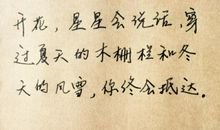 开花，星星会说话，穿
过夏天的木栅栏和冬
天的风雪，你终会抵达。